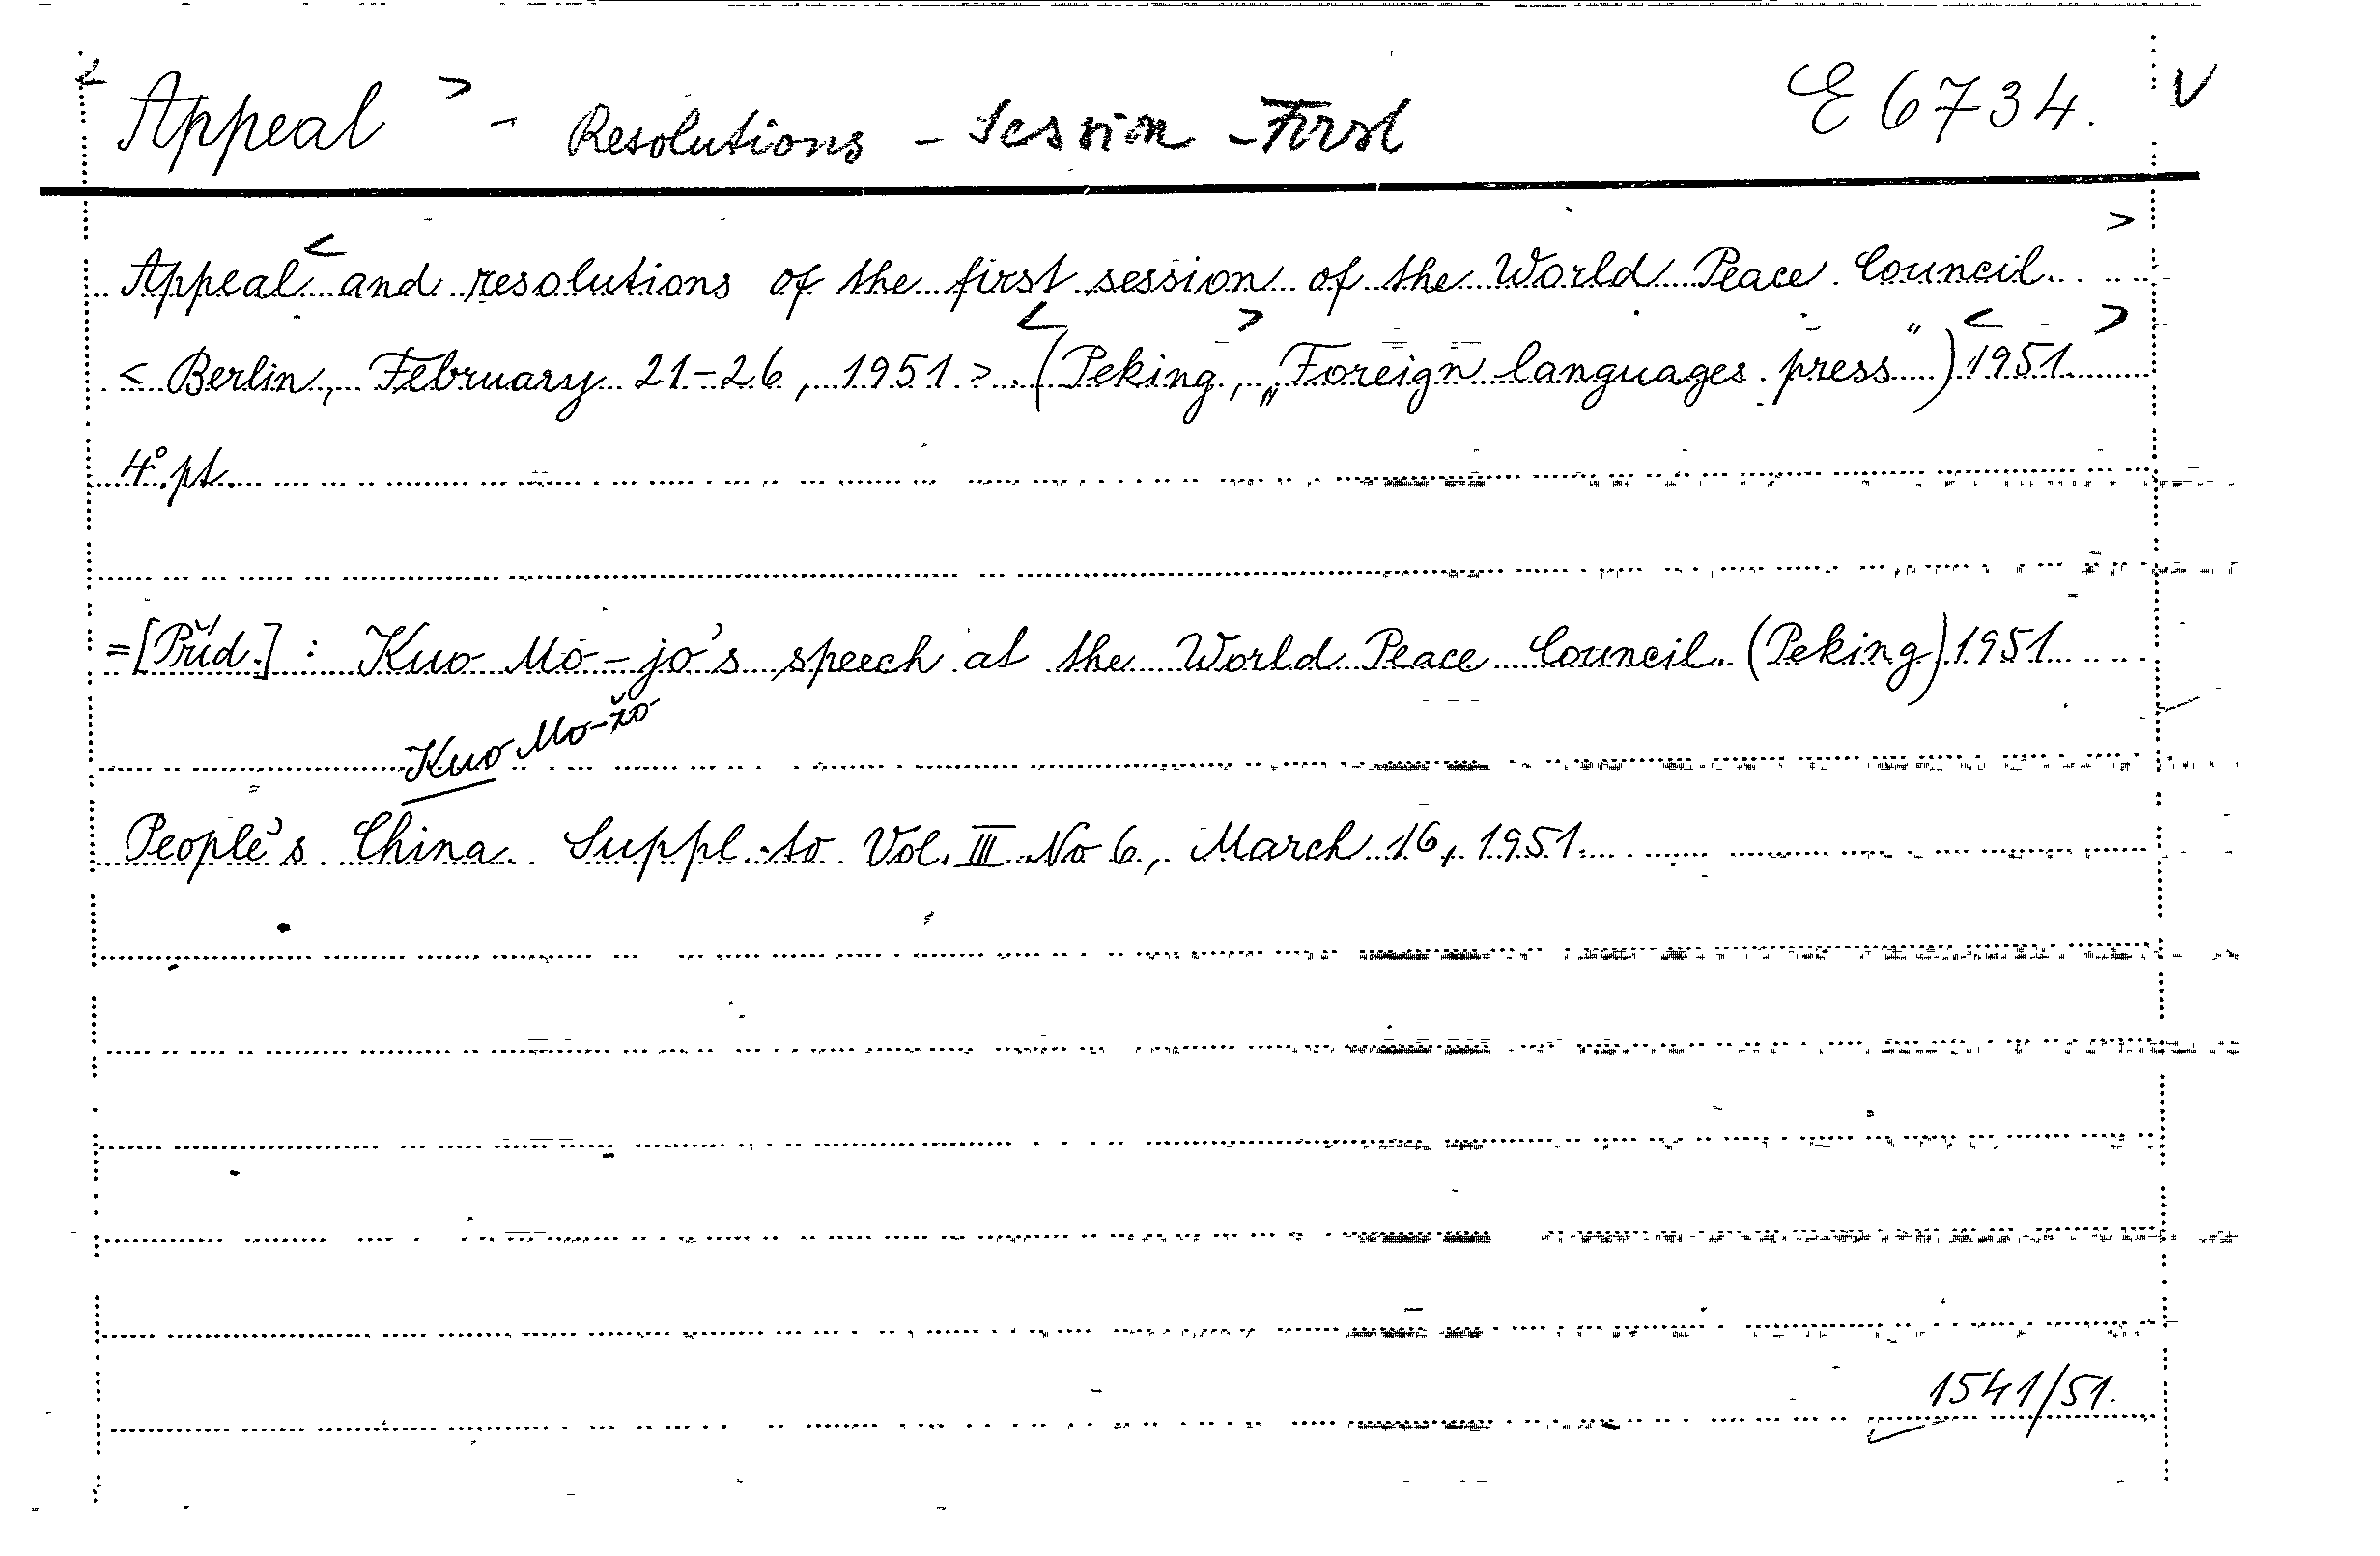 < Appeal > - Resolutions - Session - First E 6734. V
Appeal < and resolutions of the first session of the World Peace Council >
< Berlin, February 21-26, 1951 >. < (Peking >, „Foreign languages press") < 1951. >
4° pt.
= [Příd.] : Kuo Mo-jo's speech at the World Peace Council. (Peking) 1951.
Kuo Mo-žo
People's China. Suppl. to Vol. III No 6, March 16, 1951.
1541/51.